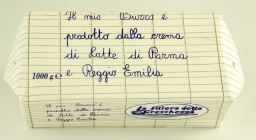 Il mio Burro è
prodotto dalla crema
di Latte di Parma
1000 g e e Reggio Emilia
Il mio Burro è
prodotto dalla crema
di Latte di Parma
e Reggio Emilia
filiera della
freschezza